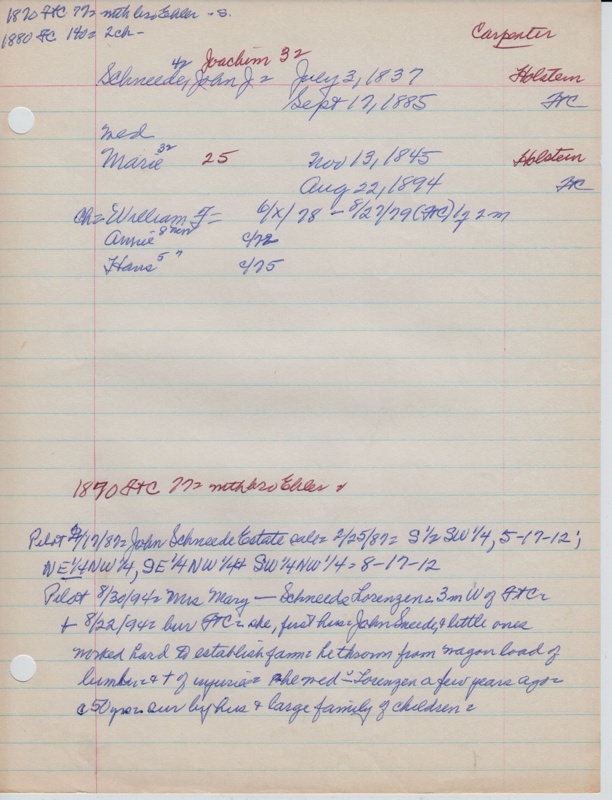 1870 FtC 77= mth bro Ehler - s.
1880 FC 140= 2ch -
Carpenter
Joachim 32
Schneede, 42 John J. = July 3, 1837 Holstein
Sept 17, 1885 FC
med
Marie 32 25 Nov 13, 1845 Holstein
Aug 22, 1894 FC
Ch = William = 6/x/78 - 8/27/79 (FC) 1y 2m
Annie 8 c/72
Hans 5 " c/75
1870 FtC 77= mth bro Ehler
Pilot 2/17/87= John Schneede Estate sale= 2/25/87= S 1/2 SW 1/4, 5-17-12;
NE 1/4 NW 1/4, SE 1/4 NW 1/4 + SW 1/4 NW 1/4 = 8-17-12
Pilot 8/30/94= Mrs Marg - Schneede Lorenzen = 3m W of FtC =
+ 8/22/94= bur FtC = she, first hus= John Sneede, & little ones
worked hard to establish farm= he thrown from wagon load of
lumber= & + of injuries= she med - Lorenzen a few years ago=
c 50 yrs= sur by hus & large family of children=